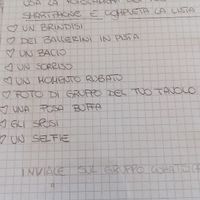 USA LA FOTOCAMERA DEL TUO
SMARTPHONE E COMPLETA LA LISTA
♡ UN BRINDISI
♡ DEI BALLERINI IN PISTA
♡ UN BACIO
♡ UN SORRISO
♡ UN MOMENTO RUBATO
♡ FOTO DI GRUPPO DEL TUO TAVOLO
♡ UNA POSA BUFFA
♡ GLI SPOSI
♡ UN SELFIE
INVIALE SUL GRUPPO WHATSAPP